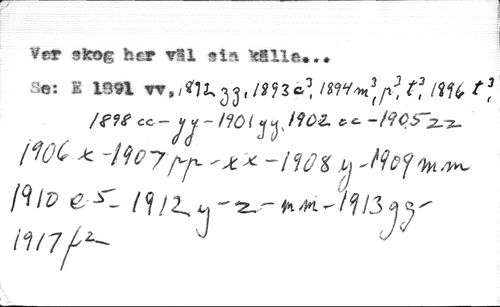 Ver skog har väl sin källa...
Se: E 1891 vv, 1892 zz, 1893 c³, 1894 m³, p³, t³, 1896 t³,
1898 cc-yy-1901 yy, 1902 cc-1905 zz
1906 x-1907 pp-xx-1908 y-1909 mm
1910 e5-1912 y-z-mm-1913 gg-
1917 f2